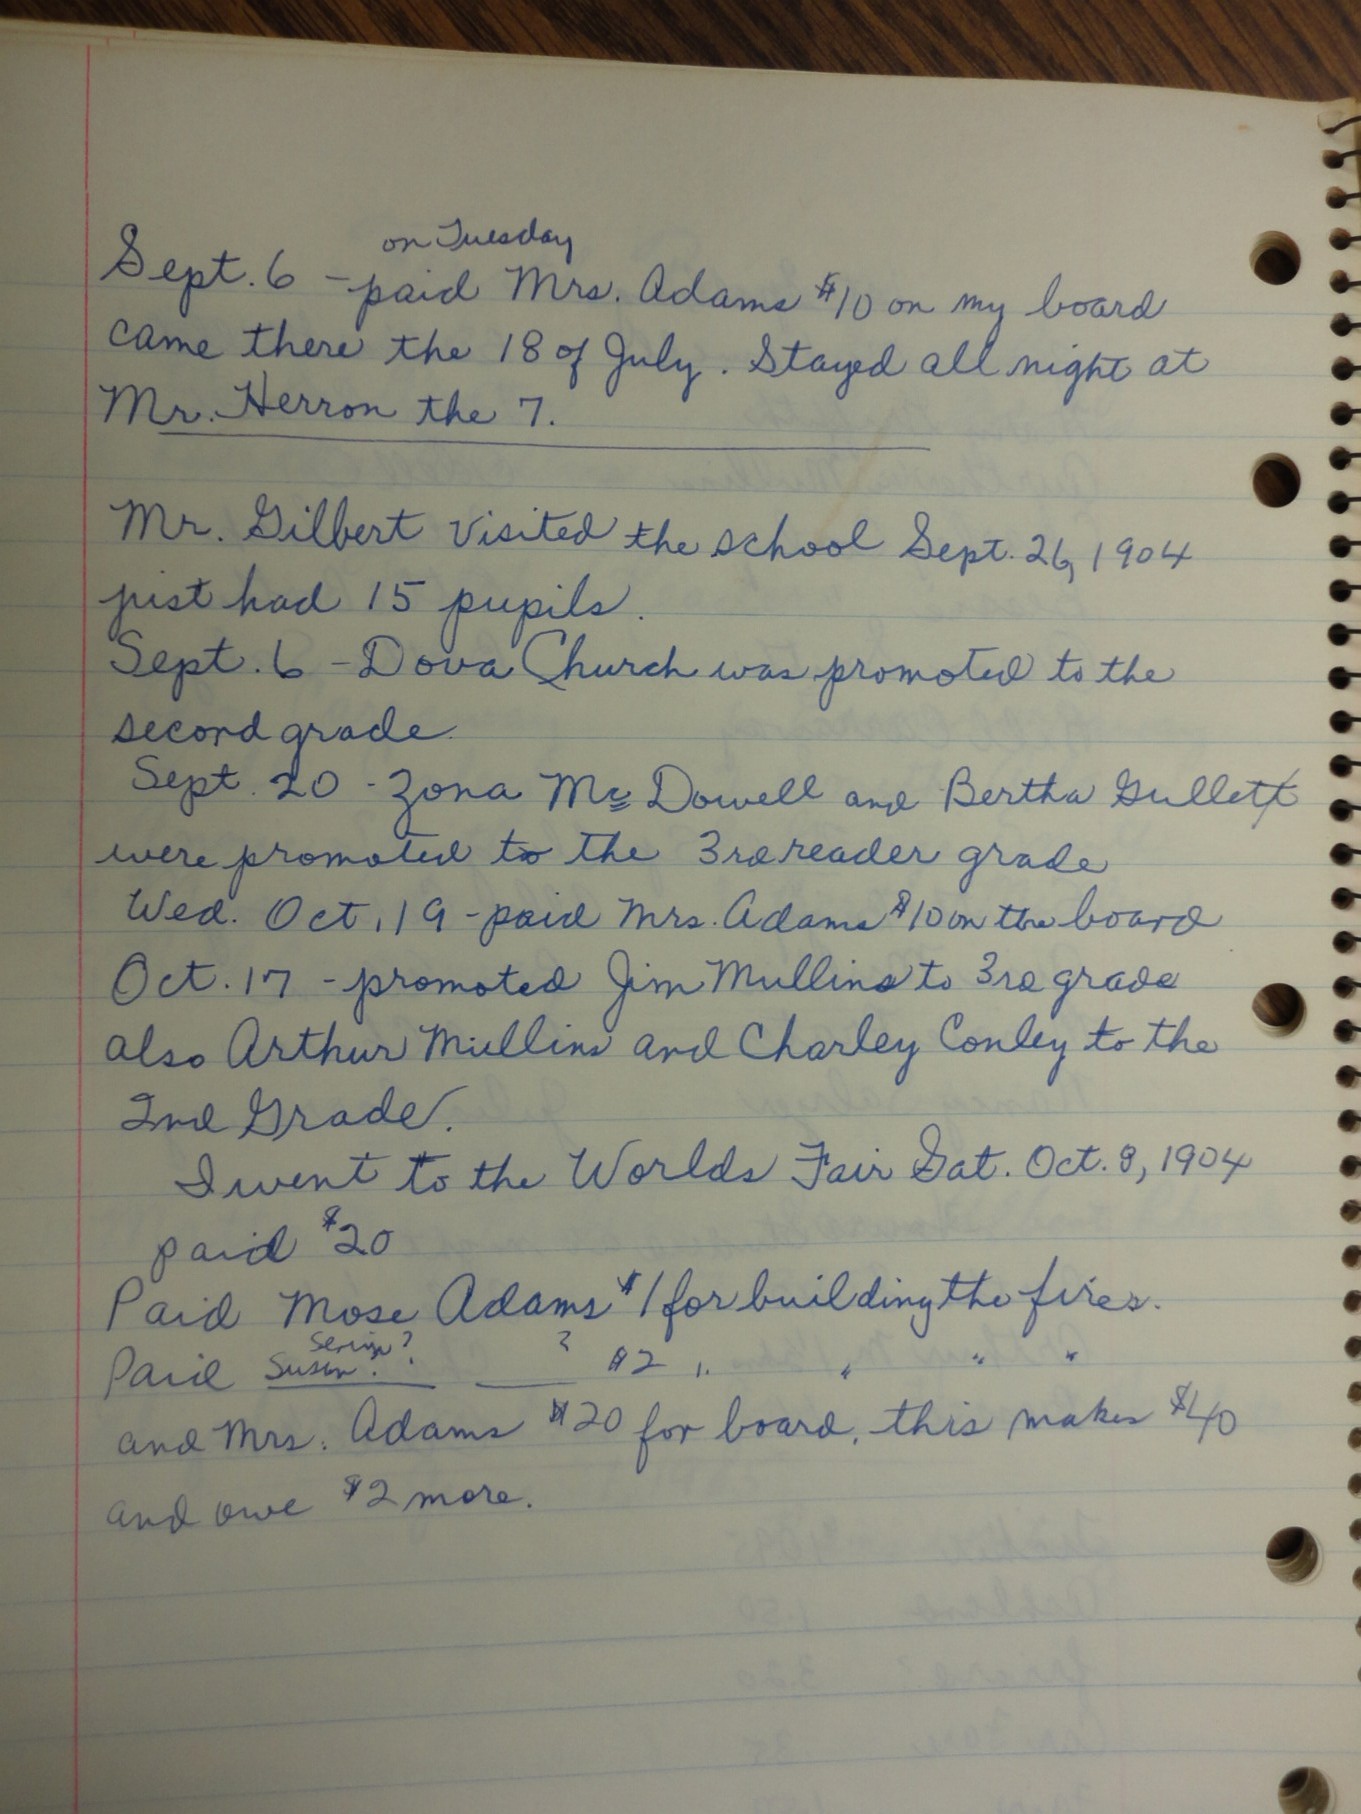 on Tuesday
Sept. 6 - paid Mrs. Adams $10 on my board
came there the 18 of July. Stayed all night at
Mr. Herron the 7.
Mr. Gilbert visited the school Sept. 26, 1904
just had 15 pupils.
Sept. 6 - Dova Church was promoted to the
second grade.
Sept. 20 - Zona McDowell and Bertha Gullett
were promoted to the 3rd reader grade
Wed. Oct. 19 - paid Mrs. Adams $10 on the board
Oct. 17 - promoted Jim Mullins to 3rd grade
also Arthur Mullins and Charley Conley to the
2nd Grade.
I went to the Worlds Fair Sat. Oct. 8, 1904
paid $20
Paid Mose Adams $1 for building the fires.
Paid Susan? ? $2 " " " "
and Mrs. Adams $20 for board, this makes $40
and owe $2 more.